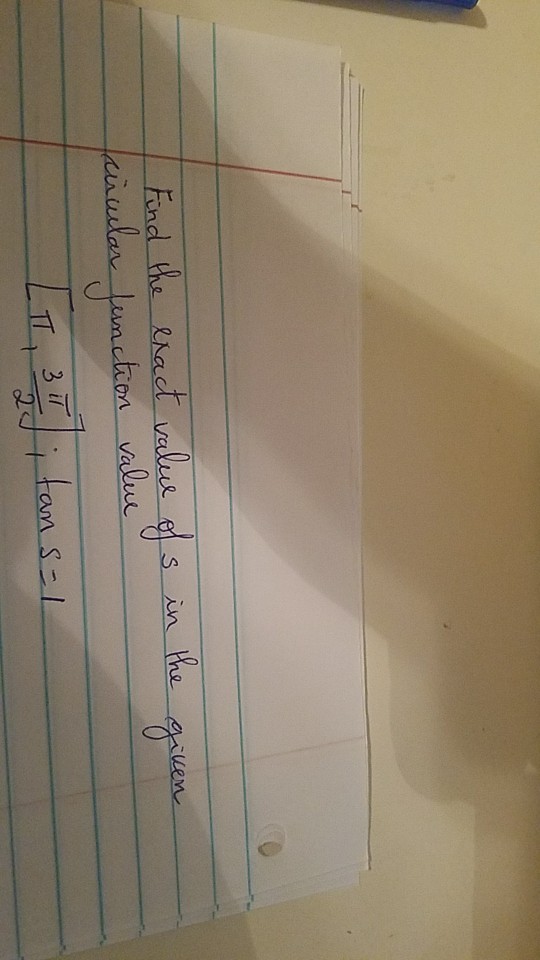 Find the exact value of s in the given
circular function value
[π, 3π/2]; tan s = 1